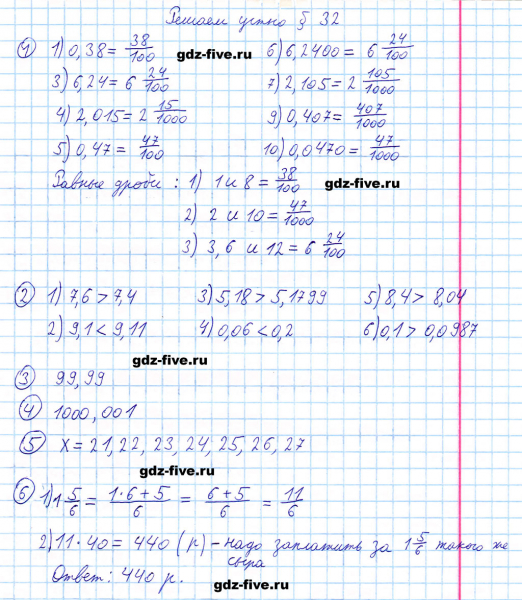 Решаем устно § 32
1) 1) 0,38 = 38/100 gdz-five.ru 6) 6,2400 = 6 24/100
3) 6,24 = 6 24/100 7) 2,105 = 2 105/1000
4) 2,015 = 2 15/1000 9) 0,407 = 407/1000
5) 0,47 = 47/100 10) 0,0470 = 47/1000
Равные дроби : 1) 1 и 8 = 38/100 gdz-five.ru
2) 2 и 10 = 47/1000
3) 3, 6 и 12 = 6 24/100
2) 1) 7,6 > 7,4 3) 5,18 > 5,1799 5) 8,4 > 8,04
2) 9,1 < 9,11 4) 0,06 < 0,2 6) 0,1 > 0,0987
gdz-five.ru
3) 99,99
4) 1000,001
5) x = 21, 22, 23, 24, 25, 26, 27
gdz-five.ru
6) 1) 1 5/6 = 1·6+5/6 = 6+5/6 = 11/6
2) 11·40 = 440 (р) – надо заплатить за 1 5/6 такого же
сыра
Ответ: 440 р.
gdz-five.ru